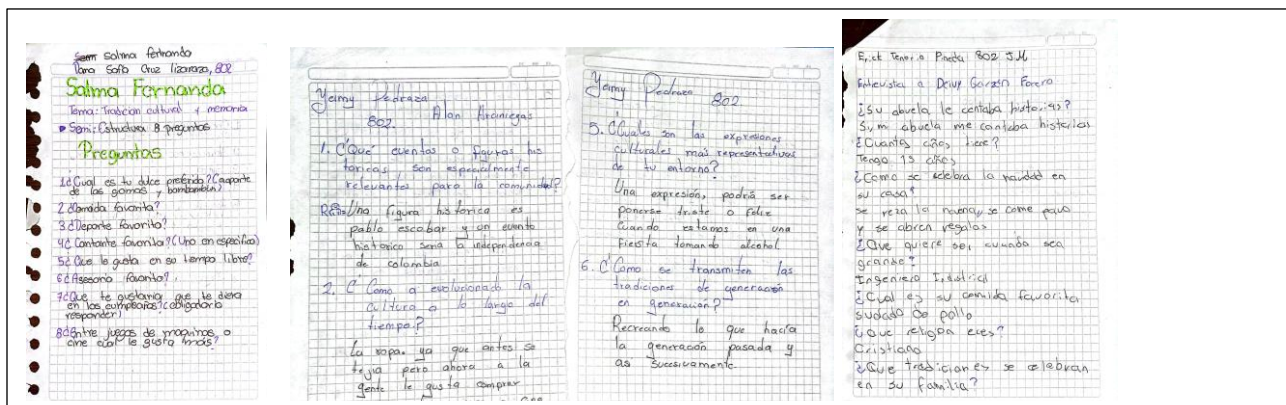 Salma fernanda
Sofia Cruz lizarazo, 802
Salma Fernanda
Tema: Tradicion cultural y memoria
Semi: Estructura 8 preguntas
Preguntas
1¿Cual es tu dulce preferido? (aparte
de las gomas y bombombun)
2¿Comida favorita?
3¿Deporte favorito?
4¿Cantante favorita? (Uno en especifico)
5¿Que le gusta en su tiempo libre?
6¿Asesorio favorito?
7¿Que te gustaria que te diera
en los cumpleaños? (obligatorio
responder)
8¿Entre juegos de maquinas o
cine cual le gusta más?
Yeimy Pedraza
802. Alan Arciniegas
1. ¿Qué eventos o figuras his
toricas son especialmente
relevantes para la comunidad?
Una figura historica es
pablo escobar y un evento
historico seria la independencia
de colombia
2. ¿Como a evolucionado la
cultura a lo largo del
tiempo?
La ropa. ya que antes se
tejia pero ahora a la
gente le gusta comprar
Yeimy Pedraza 802
5. ¿Cuales son las expresiones
culturales más representativas
de tu entorno?
Una expresión, podría ser
ponerse triste o feliz
cuando estamos en una
fiesta tomando alcohol
6. ¿Como se transmiten las
tradiciones de generación
en generación?
Recreando lo que hacía
la generación pasada y
asi sucesivamente.
Erick Tenorio Pineda 802 J.M
Entrevista a Deivy Garzón Forero
¿Su abuela le contaba historias?
Si, mi abuela me contaba historias
¿Cuantos años tiene?
Tengo 13 años
¿Como se celebra la navidad en
su casa?
se reza la novena, se come pavo
y se abren regalos
¿Que quiere ser cuando sea
grande?
Ingeniero Industrial
¿Cual es su comida favorita
sudado de pollo
¿Que religion eres?
Cristiano
¿Que tradiciones se celebran
en su familia?